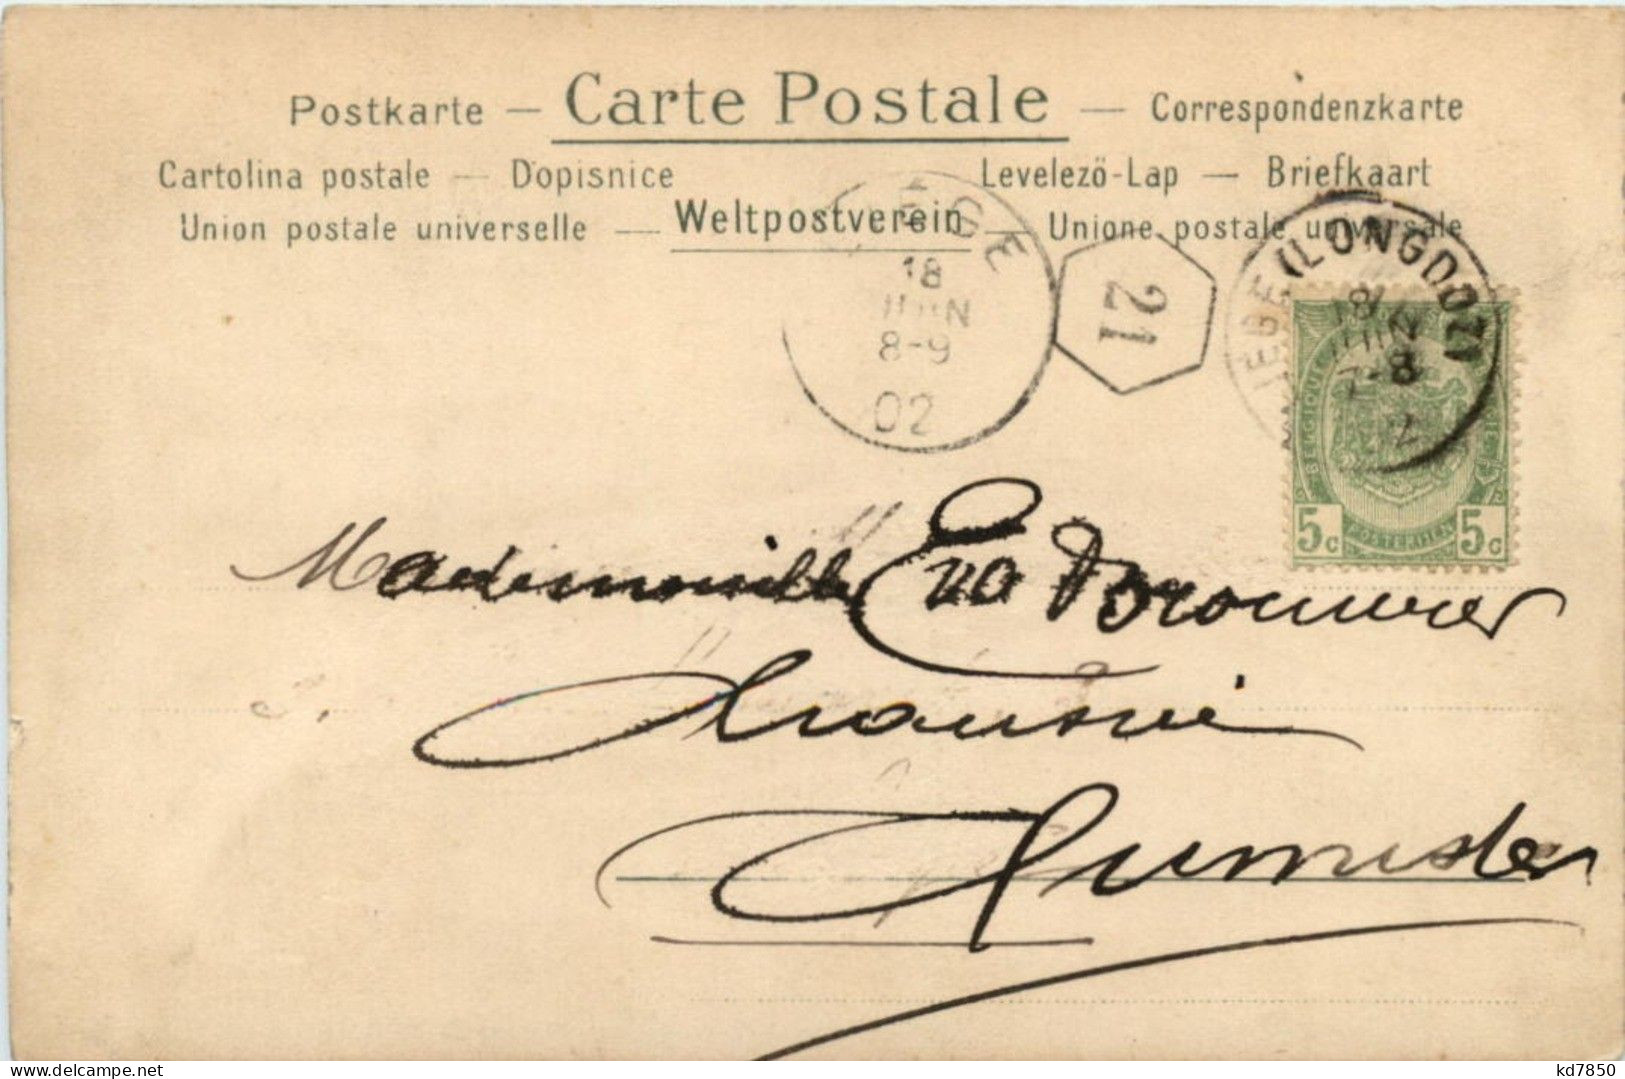 Postkarte — Carte Postale — Correspondenzkarte
Cartolina postale — Dopisnice
Levelező-Lap — Briefkaart
Union postale universelle — Weltpostverein — Unione postale universale
18
JUIN
8-9
02
21
(LONGDOZ)
18
JUIN
7-8
2
BELGIQUE
5c POSTERIJEN 5c
Mademoiselle Eva Brouwer
kd7850